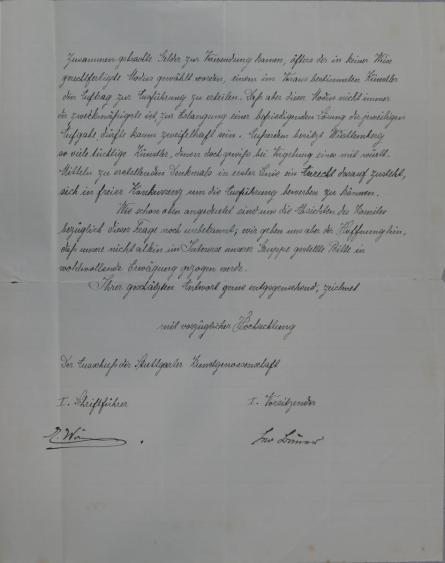 Zusammen gebrachte Gelder zur Verwendung kamen, öfters der in keiner Weise
gerechtfertigte Modus gewählt worden, einem im Voraus bestimmten Künstler
den Auftrag zur Ausführung zu erteilen. Daß aber dieser Modus nicht immer
der zweckmäßigste ist, zur Erlangung einer befriedigenden Lösung der jeweiligen
Aufgabe dürfte kaum zweifelhaft sein. Außerdem besitzt Württemberg
so viele tüchtige Künstler, denen doch gewiß bei Vergebung eines mit württ.
Mitteln zu erstellenden Denkmals in erster Linie ein Anrecht darauf zusteht,
sich in freier Konkurrenz um die Ausführung bewerben zu können.
Wie schon oben angedeutet sind uns die Absichten des Komites
bezüglich dieser Frage noch unbekannt; wir geben uns aber der Hoffnung hin,
daß unsere nicht allein im Interesse unserer Gruppe gestellte Bitte in
wohlwollende Erwägung gezogen werde.
Ihrer geschätzten Antwort gerne entgegensehend, zeichnet
mit vorzüglicher Hochachtung
Der Ausschuß der Stuttgarter Kunstgenossenschaft
I. Schriftführer
I. Vorsitzender